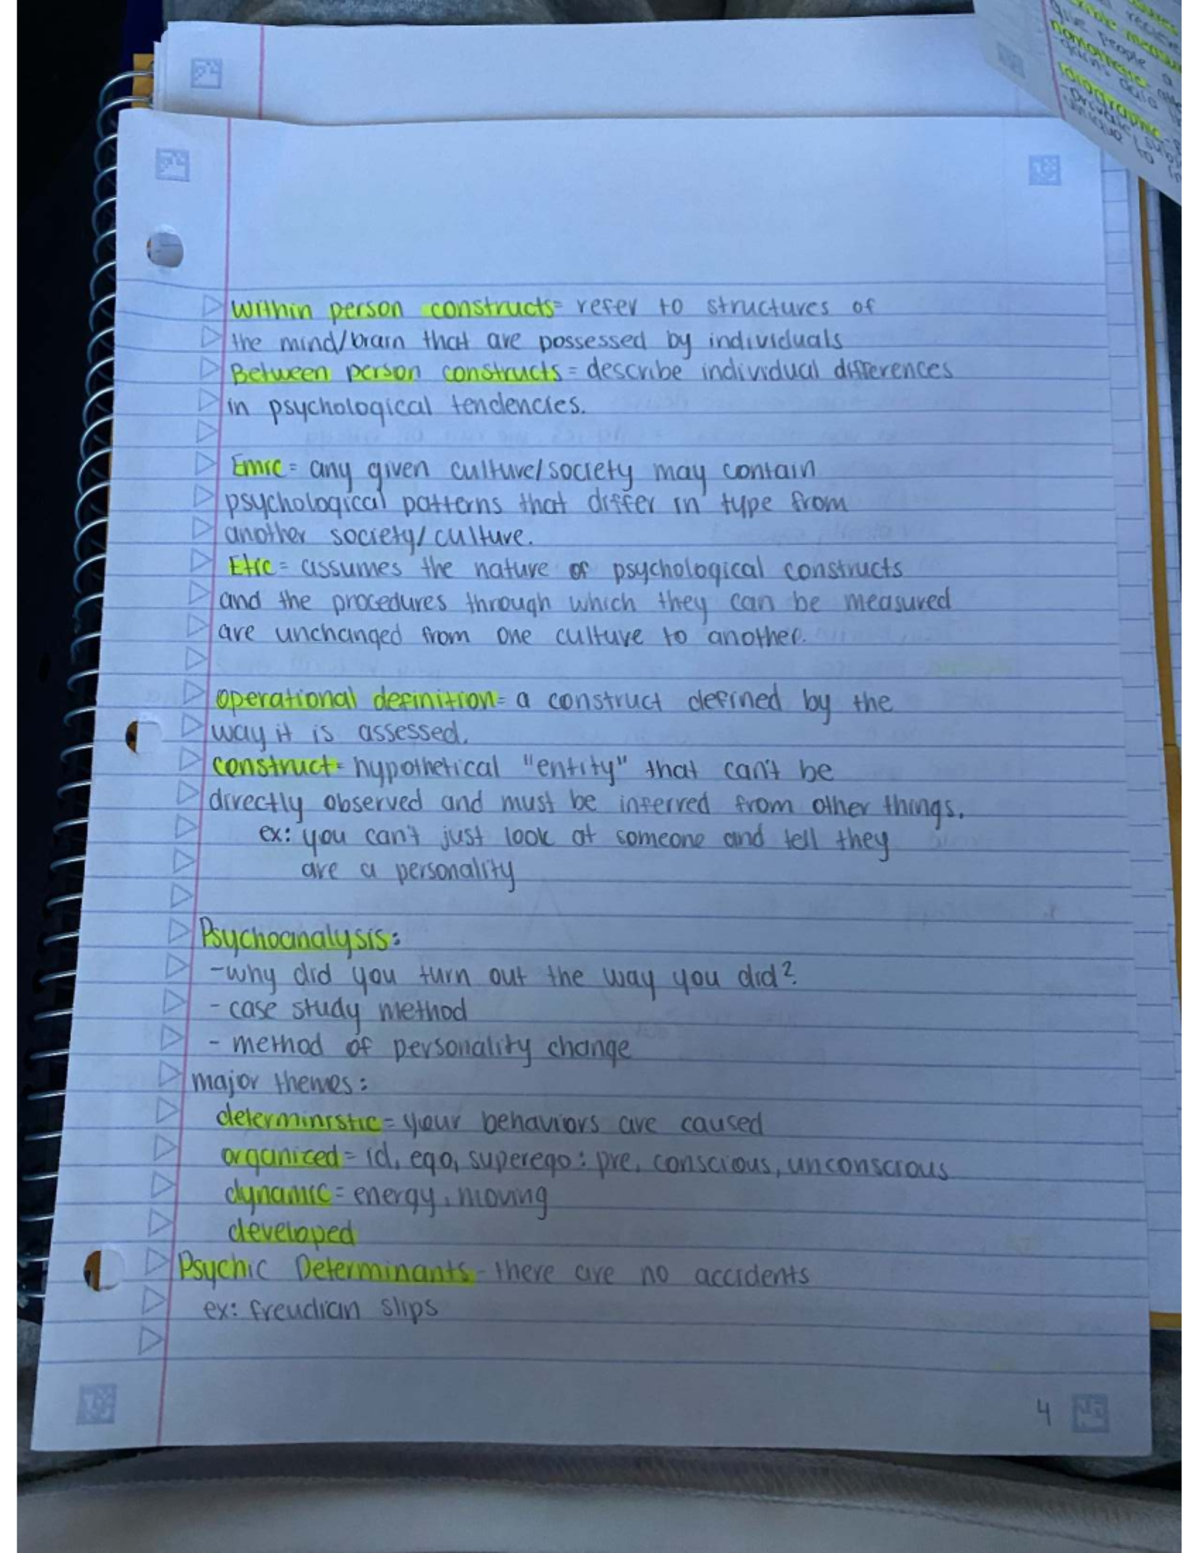 within person constructs= refer to structures of
the mind/brain that are possessed by individuals
Between person constructs = describe individual differences
in psychological tendencies.
Emic = any given culture/society may contain
psychological patterns that differ in type from
another society/culture.
Etic = assumes the nature of psychological constructs
and the procedures through which they can be measured
are unchanged from one culture to another.
operational definition= a construct defined by the
way it is assessed.
construct= hypothetical "entity" that can't be
directly observed and must be inferred from other things.
ex: you can't just look at someone and tell they
are a personality
Psychoanalysis:
-why did you turn out the way you did?
- case study method
- method of personality change
major themes:
deterministic = your behaviors are caused
organized = id, ego, superego: pre, conscious, unconscious
dynamic = energy, moving
developed
Psychic Determinants - there are no accidents
ex: freudian slips
4
give people a
nomothetic
idiographic